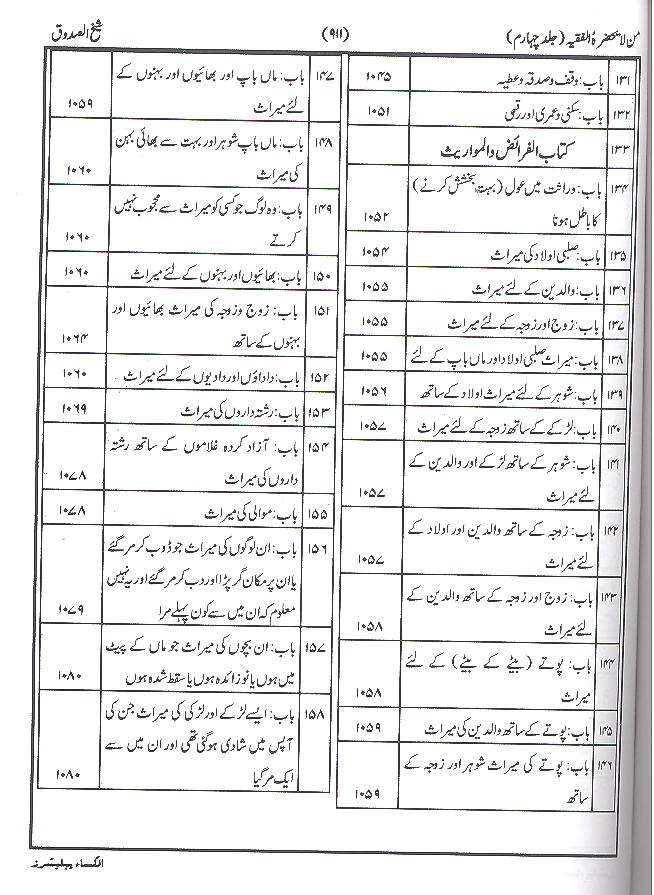 من لا یحضرہ الفقیہ (جلد چہارم)
(۹۱۱)
شیخ الصدوق
۱۳۱ باب: وقف و صدقہ و عطیہ ۱۰۴۵
۱۳۲ باب: سکنیٰ و عمریٰ اور رقبیٰ ۱۰۵۱
۱۳۳ کتاب الفرائض والمواریث
۱۳۴ باب: وراثت میں عول (بہت بخشش کرنے)
کا باطل ہونا ۱۰۵۲
۱۳۵ باب: صلبی اولاد کی میراث ۱۰۵۴
۱۳۶ باب: والدین کے لئے میراث ۱۰۵۵
۱۳۷ باب: زوج اور زوجہ کے لئے میراث ۱۰۵۵
۱۳۸ باب: میراث صلبی اولاد اور ماں باپ کے لئے ۱۰۵۵
۱۳۹ باب: شوہر کے لئے میراث اولاد کے ساتھ ۱۰۵۶
۱۴۰ باب: لڑکے کے ساتھ زوجہ کے لئے میراث ۱۰۵۷
۱۴۱ باب: شوہر کے ساتھ لڑکے اور والدین کے
لئے میراث ۱۰۵۷
۱۴۲ باب: زوجہ کے ساتھ والدین اور اولاد کے
لئے میراث ۱۰۵۷
۱۴۳ باب: زوج اور زوجہ کے ساتھ والدین کے
لئے میراث ۱۰۵۸
۱۴۴ باب: پوتے (بیٹے کے بیٹے) کے لئے
میراث ۱۰۵۸
۱۴۵ باب: پوتے کے ساتھ والدین کی میراث ۱۰۵۹
۱۴۶ باب: پوتے کی میراث شوہر اور زوجہ کے
ساتھ ۱۰۵۹
۱۴۷ باب: ماں باپ اور بھائیوں اور بہنوں کے
لئے میراث ۱۰۵۹
۱۴۸ باب: ماں باپ شوہر اور بہت سے بھائی بہن
کی میراث ۱۰۶۰
۱۴۹ باب: وہ لوگ جو کسی کو میراث سے محجوب نہیں
کرتے ۱۰۶۰
۱۵۰ باب: بھائیوں اور بہنوں کے لئے میراث ۱۰۶۰
۱۵۱ باب: زوج و زوجہ کی میراث بھائیوں اور
بہنوں کے ساتھ ۱۰۶۴
۱۵۲ باب: داداؤں اور دادیوں کے لئے میراث ۱۰۶۰
۱۵۳ باب: رشتہ داروں کی میراث ۱۰۶۹
۱۵۴ باب: آزاد کردہ غلاموں کے ساتھ رشتہ
داروں کی میراث ۱۰۷۸
۱۵۵ باب: موالی کی میراث ۱۰۷۸
۱۵۶ باب: ان لوگوں کی میراث جو ڈوب کر مر گئے
یا ان پر مکان گر پڑا اور دب کر مر گئے اور یہ نہیں
معلوم کہ ان میں سے کون پہلے مرا ۱۰۷۹
۱۵۷ باب: ان بچوں کی میراث جو ماں کے پیٹ
میں ہوں یا نوزائدہ ہوں یا سقط شدہ ہوں ۱۰۸۰
۱۵۸ باب: ایسے لڑکے اور لڑکی کی میراث جن کی
آپس میں شادی ہوگئی تھی اور ان میں سے
ایک مر گیا ۱۰۸۰
الکساء پبلیشرز